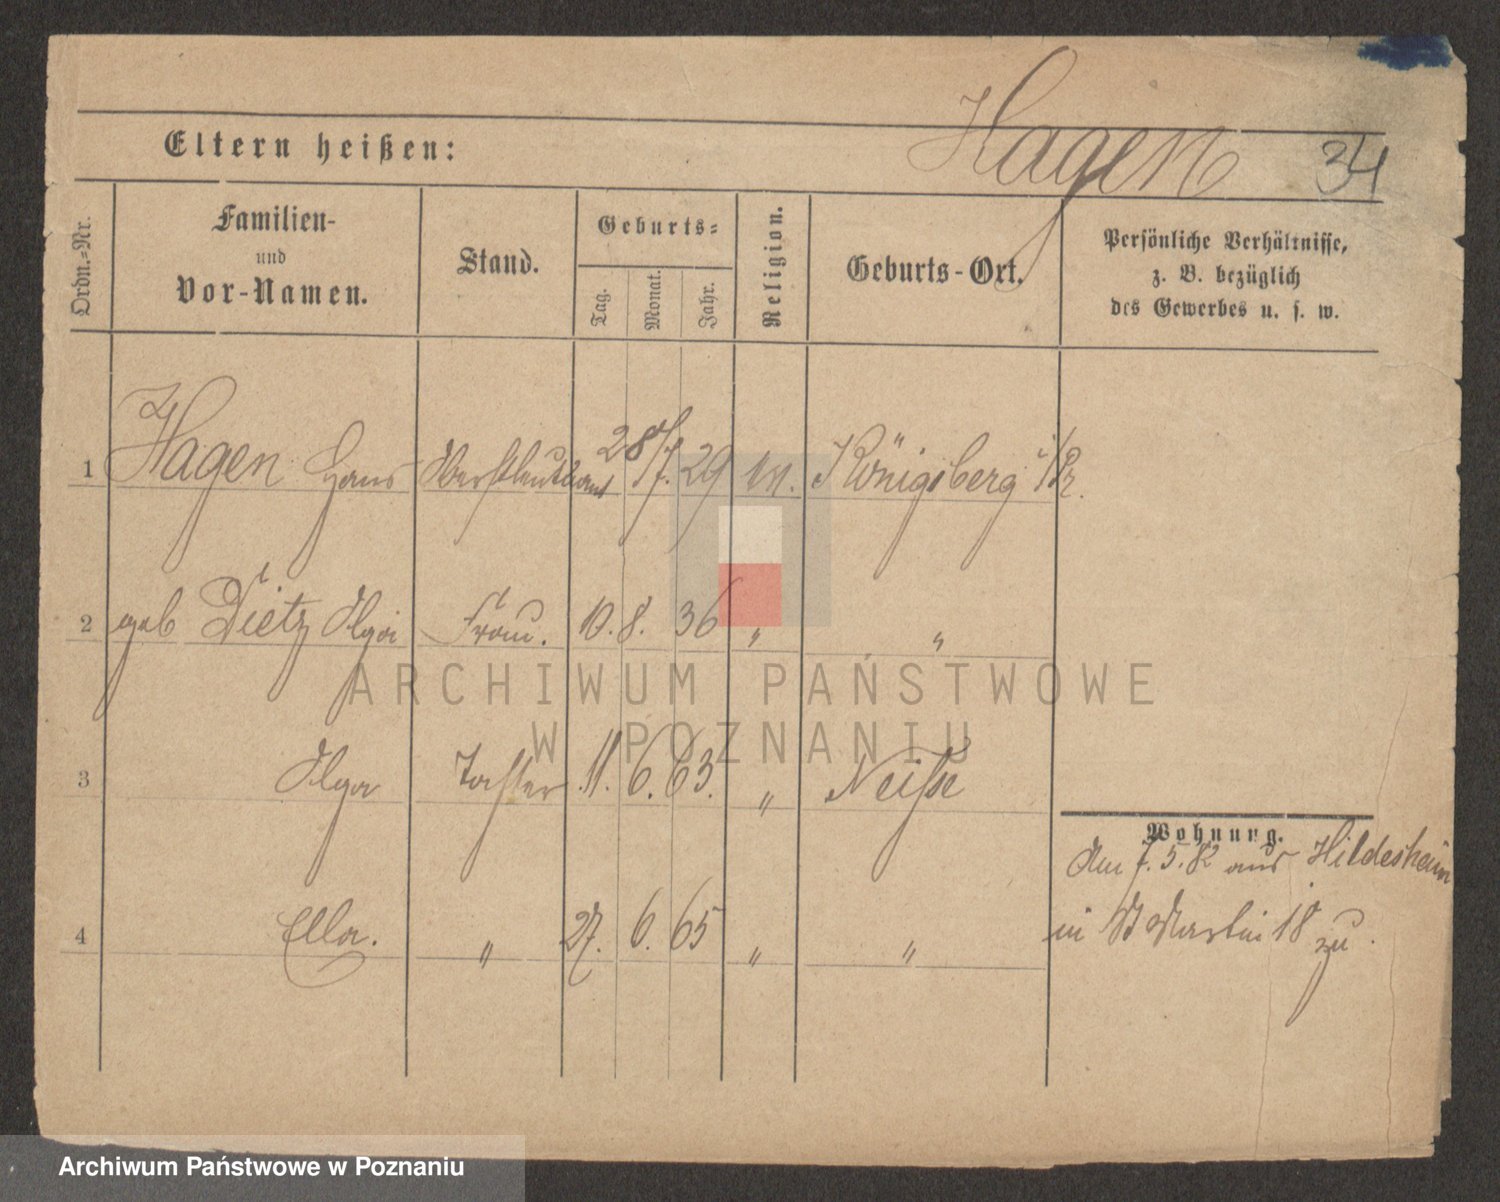 Hagen 34
Eltern heißen:
Ordn.-Nr.
Familien-
und
Vor-Namen.
Stand.
Geburts-
Tag.
Monat.
Jahr.
Religion.
Geburts-Ort.
Persönliche Verhältnisse,
z. B. bezüglich
des Gewerbes u. s. w.
1 Hagen Hans Oberstleutnant 28/7. 29 ev. Königsberg i/Pr.
2 geb Dietz Olga Frau. 10. 8. 36 " "
3 Olga Tochter 11. 6. 63. " Neisse
4 Ella. " 27. 6. 65 " "
Wohnung.
Am 7.5.82 aus Hildesheim
in St Martin 18 zu.
ARCHIWUM PAŃSTWOWE
W POZNANIU
Archiwum Państwowe w Poznaniu